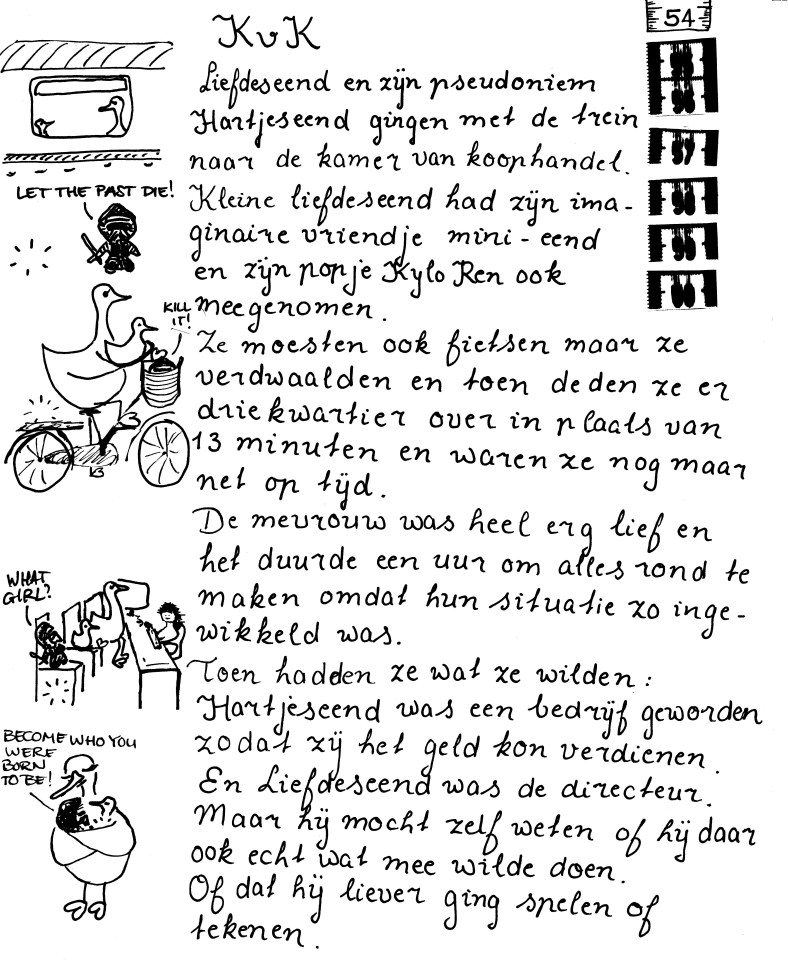 KvK
54
Liefdeseend en zijn pseudoniem
Hartjeseend gingen met de trein
naar de kamer van koophandel.
LET THE PAST DIE!
Kleine liefdeseend had zijn ima-
ginaire vriendje mini-eend
en zijn popje Kylo Ren ook
meegenomen.
KILL
IT!
Ze moesten ook fietsen maar ze
verdwaalden en toen deden ze er
driekwartier over in plaats van
13 minuten en waren ze nog maar
net op tijd.
De mevrouw was heel erg lief en
het duurde een uur om alles rond te
maken omdat hun situatie zo inge-
wikkeld was.
WHAT
GIRL?
Toen hadden ze wat ze wilden:
Hartjeseend was een bedrijf geworden
zodat zij het geld kon verdienen.
En Liefdeseend was de directeur.
Maar hij mocht zelf weten of hij daar
ook echt wat mee wilde doen.
Of dat hij liever ging spelen of
tekenen.
BECOME WHO YOU
WERE
BORN
TO BE!